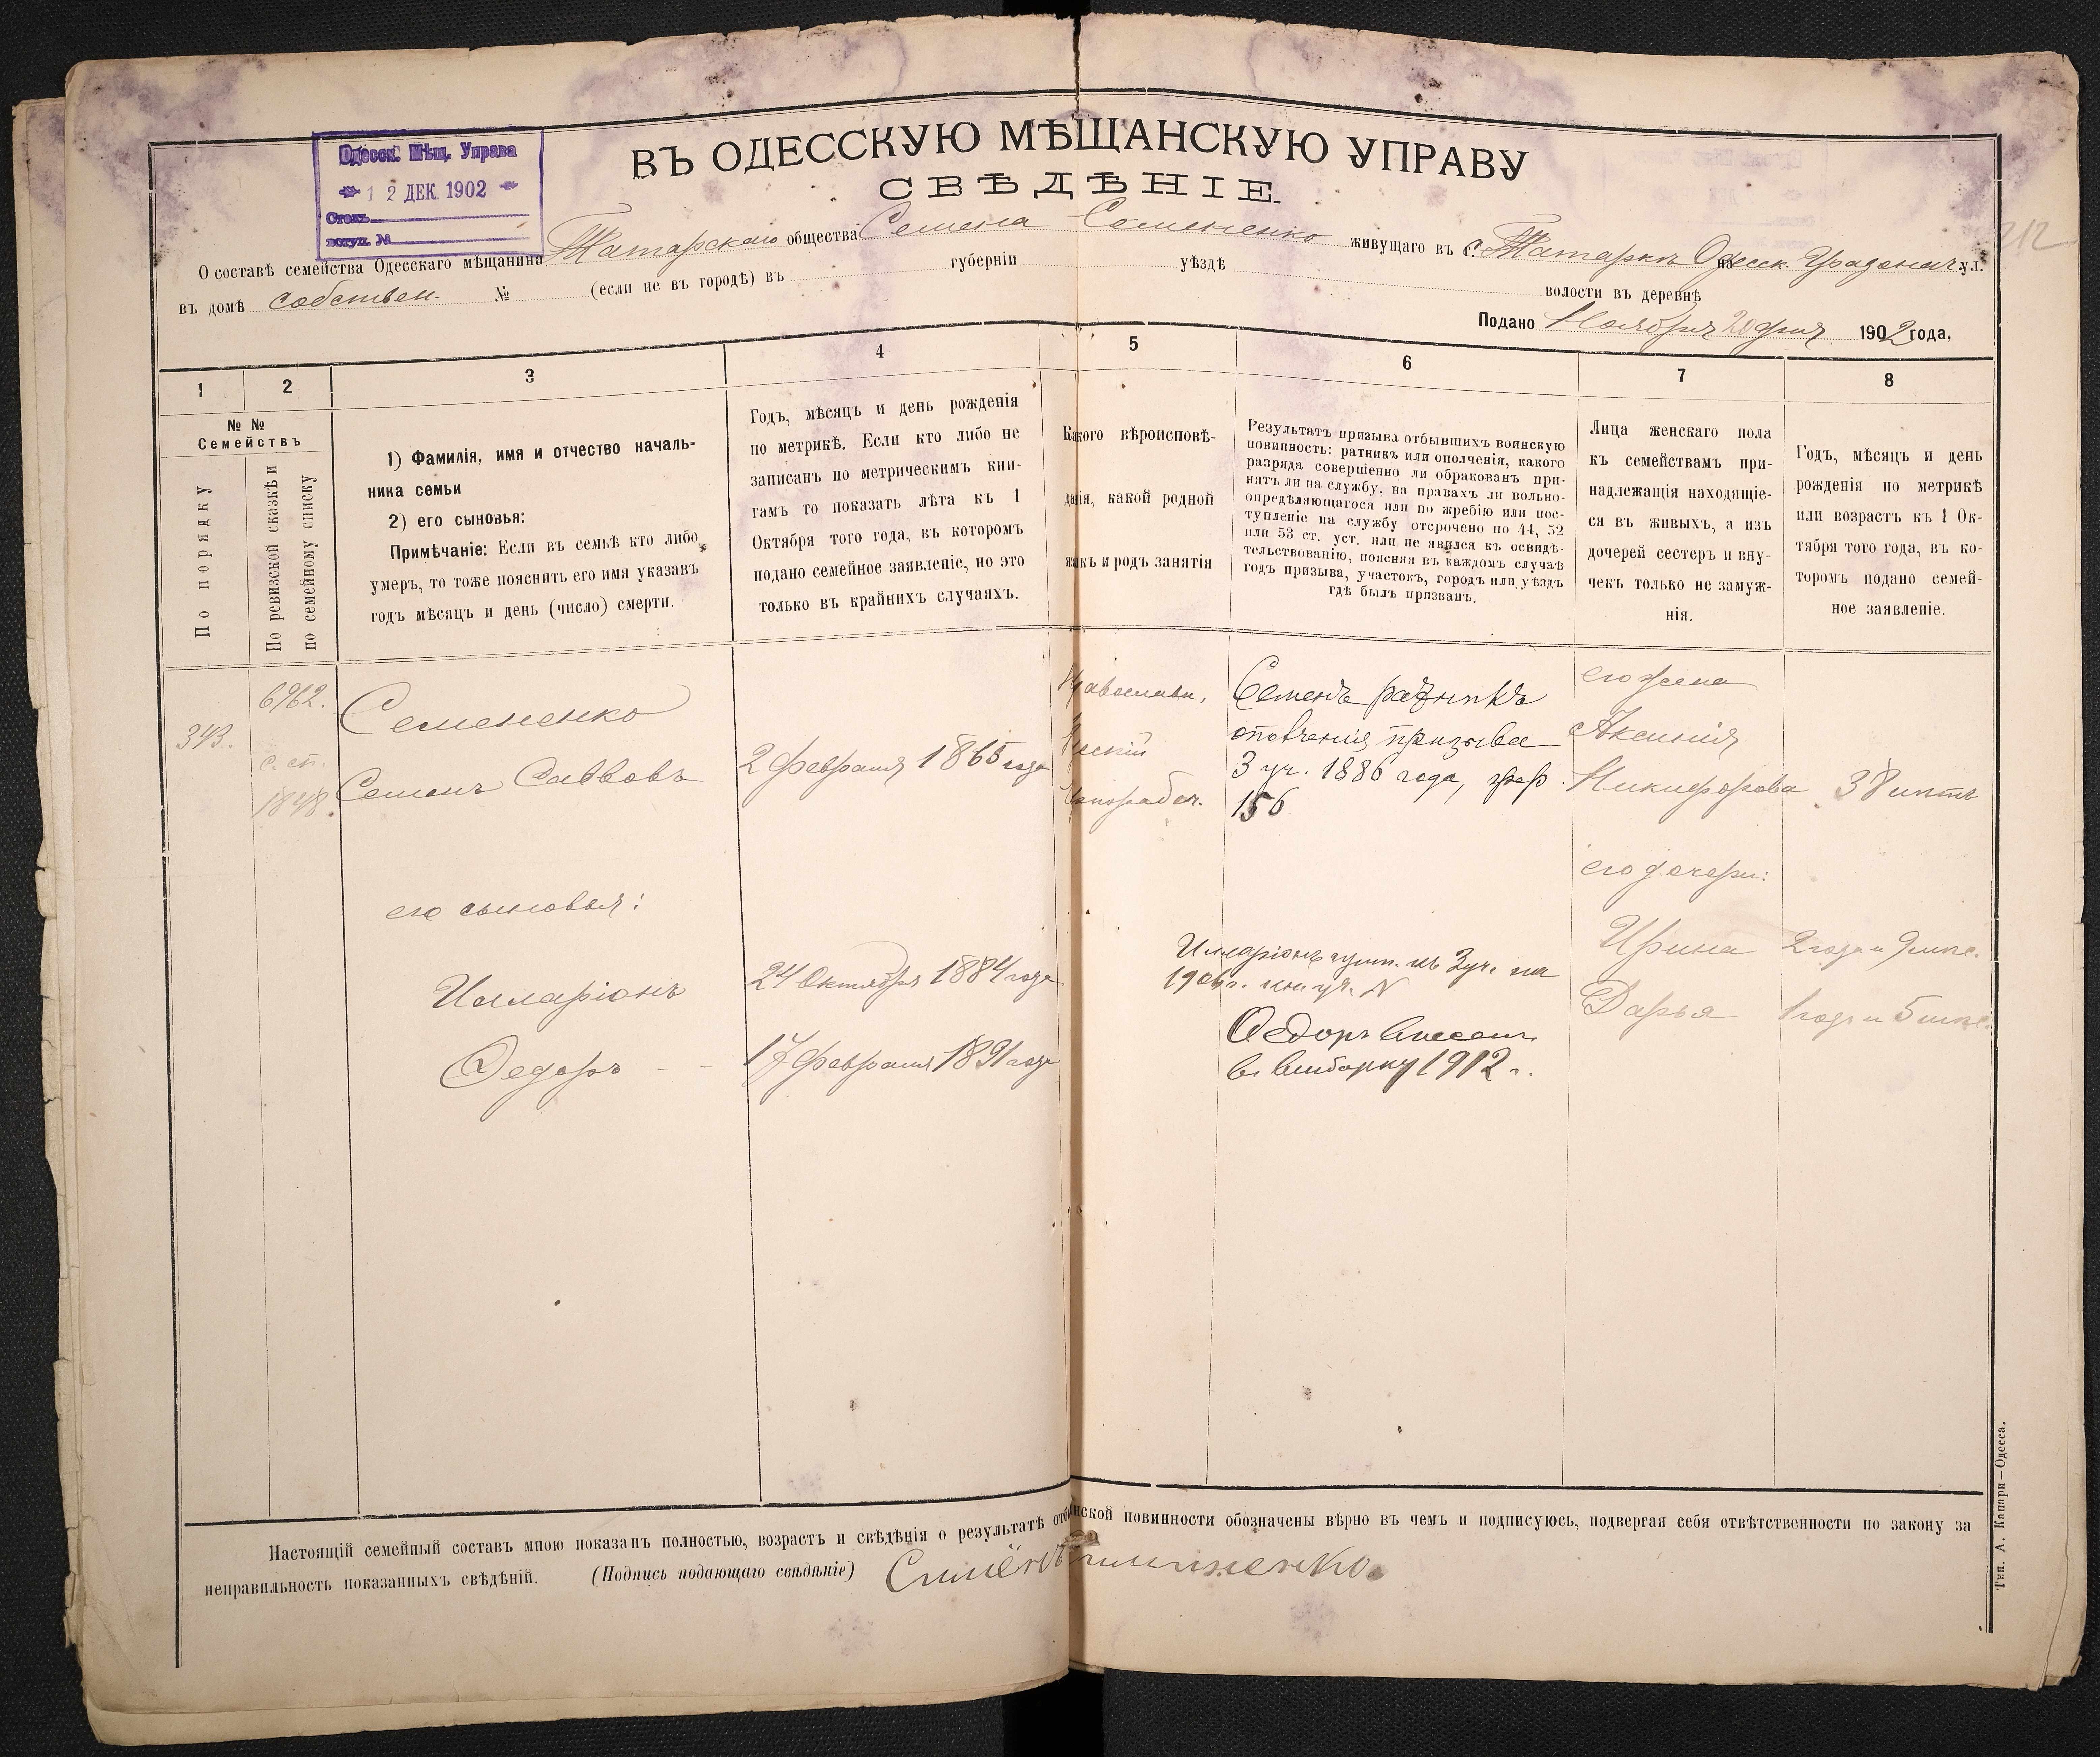 ВЪ ОДЕССКУЮ МѢЩАНСКУЮ УПРАВУ
СВѢДѢНІЕ.
Одесск. Мѣщ. Управа
12 ДЕК. 1902
Столъ
вступ. №
212
О составѣ семейства Одесскаго мѣщанина Татарскаго общества Семена Семененко живущаго въ с. Татаркѣ Одесск. на ул.
въ домѣ собствен. № (если не въ городѣ) въ губерніи уѣздѣ волости въ деревнѣ
Подано Ноября 20 дня 1902 года,
1 2 3 4 5 6 7 8
№ №
Семействъ
По порядку
По ревизской сказкѣ и
по семейному списку
1) Фамилія, имя и отчество началь-
ника семьи
2) его сыновья:
Примѣчаніе: Если въ семьѣ кто либо
умеръ, то тоже пояснить его имя указавъ
годъ мѣсяцъ и день (число) смерти.
Годъ, мѣсяцъ и день рожденія
по метрикѣ. Если кто либо не
записанъ по метрическимъ кни-
гамъ то показать лѣта къ 1
Октября того года, въ которомъ
подано семейное заявленіе, но это
только въ крайнихъ случаяхъ.
Какого вѣроисповѣ-
данія, какой родной
языкъ и родъ занятія
Результатъ призыва отбывшихъ воинскую
повинность: ратникъ или ополченія, какого
разряда совершенно ли обракованъ при-
нятъ ли на службу, на правахъ ли вольно-
опредѣляющагося или по жребію или пос-
тупленіе на службу отсрочено по 44, 52
или 53 ст. уст. или не явился къ освидѣ-
тельствованію, поясняя въ каждомъ случаѣ
годъ призыва, участокъ, городъ или уѣздъ
гдѣ былъ призванъ.
Лица женскаго пола
къ семействамъ при-
надлежащія находящіе-
ся въ живыхъ, а изъ
дочерей сестеръ и вну-
чекъ только не замуж-
нія.
Годъ, мѣсяцъ и день
рожденія по метрикѣ
или возрастъ къ 1 Ок-
тября того года, въ ко-
торомъ подано семей-
ное заявленіе.
343.
6962.
с. сп.
1848.
Семененко
Семенъ Саввовъ
2 февраля 1865 года
Православн.
Русскій
Семенъ ратникъ
ополченія призыва
3 уч. 1886 года, жреб.
156
его жена
Аксинія
Никифорова 38 лѣтъ
его дочери:
его сыновья:
Иларіонъ 24 Октября 1884 года
Иларіонъ къ 3 уч. на
1906 г.
Ирина 2 года и 9 мѣс.
Дарья 1 годъ и 5 мѣс.
Федоръ 17 февраля 1891 года
Федоръ внесенъ
въ выборку 1912 г.
Настоящій семейный составъ мною показанъ полностью, возрастъ и свѣдѣнія о результатѣ повинности обозначены вѣрно въ чемъ и подписуюсь, подвергая себя отвѣтственности по закону за
неправильность показанныхъ свѣдѣній. (Подпись подающаго свѣдѣніе) Семёнъ
Тип. А. Капари—Одесса.